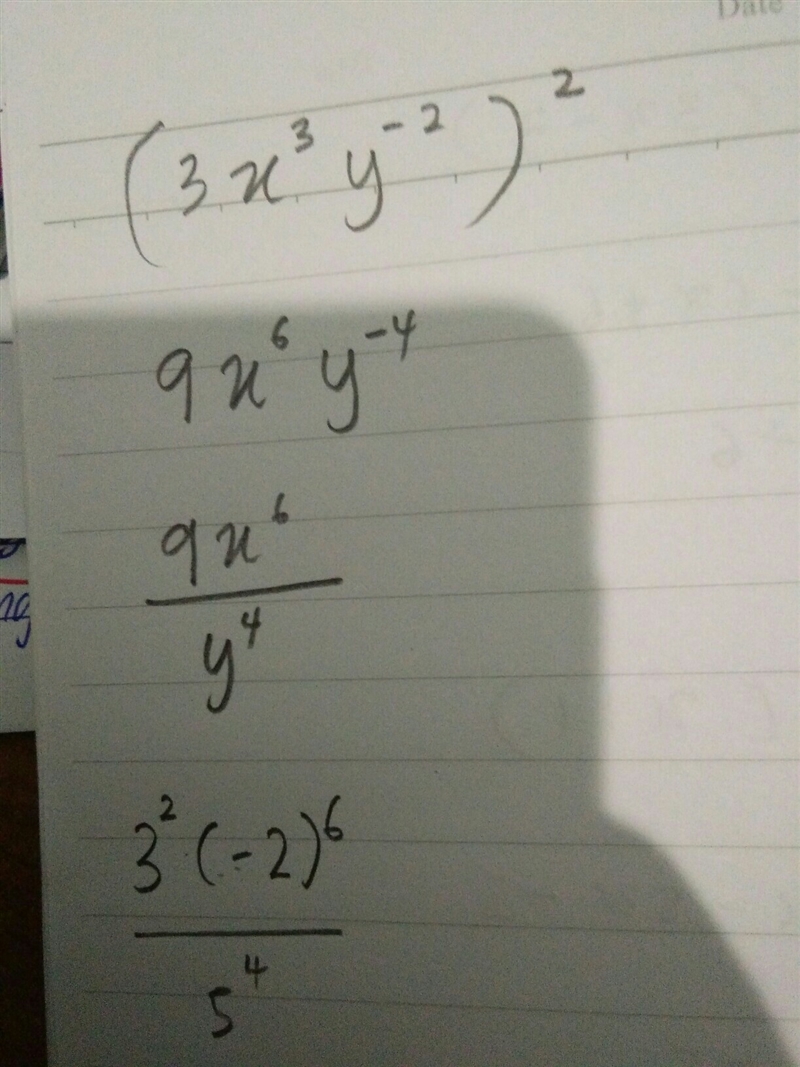 Date
(3x³y⁻²)²
9x⁶y⁻⁴
9x⁶
y⁴
3²(-2)⁶
5⁴